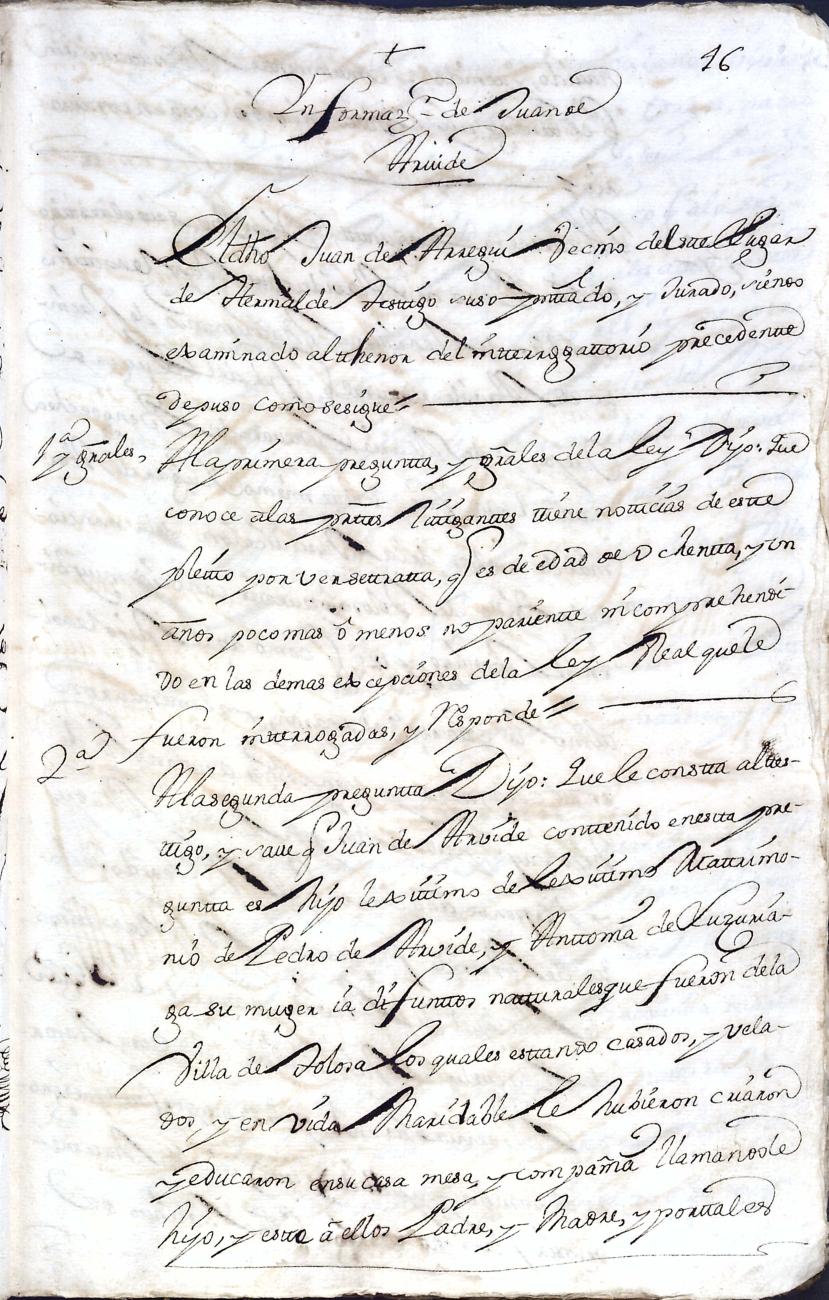 +
16
Informaz.n de Juan de
Arvide
El dho Juan de Arregui Vecino deeste Lugar
de Hernialde testigo suso pnttado, y Jurado, siendo
examinado al thenor del interrogattorio precedentte
depuso como sesigue =
1ª y gnrales, A la primera preguntta, y gnrales de la ley Dijo: Que
conoce a las parttes litigantes ttiene notticias de este
pleitto por verse ttratta, q es de edad de ochentta, y un
años poco mas ô menos no parientte ni comprehendi-
do en las demas excepciones dela ley Real que le
fueron intterrogadas, y Responde =
2ª A la segunda pregunta Dijo: Que le constta al tes-
tigo, y save q Juan de Arvide conttenido en esta pre-
guntta es hijo lexittimo de lexittimo Mattrimo-
nio de Pedro de Arvide, y Anttonia de Luzuria-
ga su muger ia difunttos natturales que fueron de la
Villa de Tolosa los quales esttando casados, y vela-
dos, y en vida Maridable le hubieron criaron
y educaron en su casa mesa, y compañia llamandole
hijo, y este a ellos Padre, y Madre, y por tales